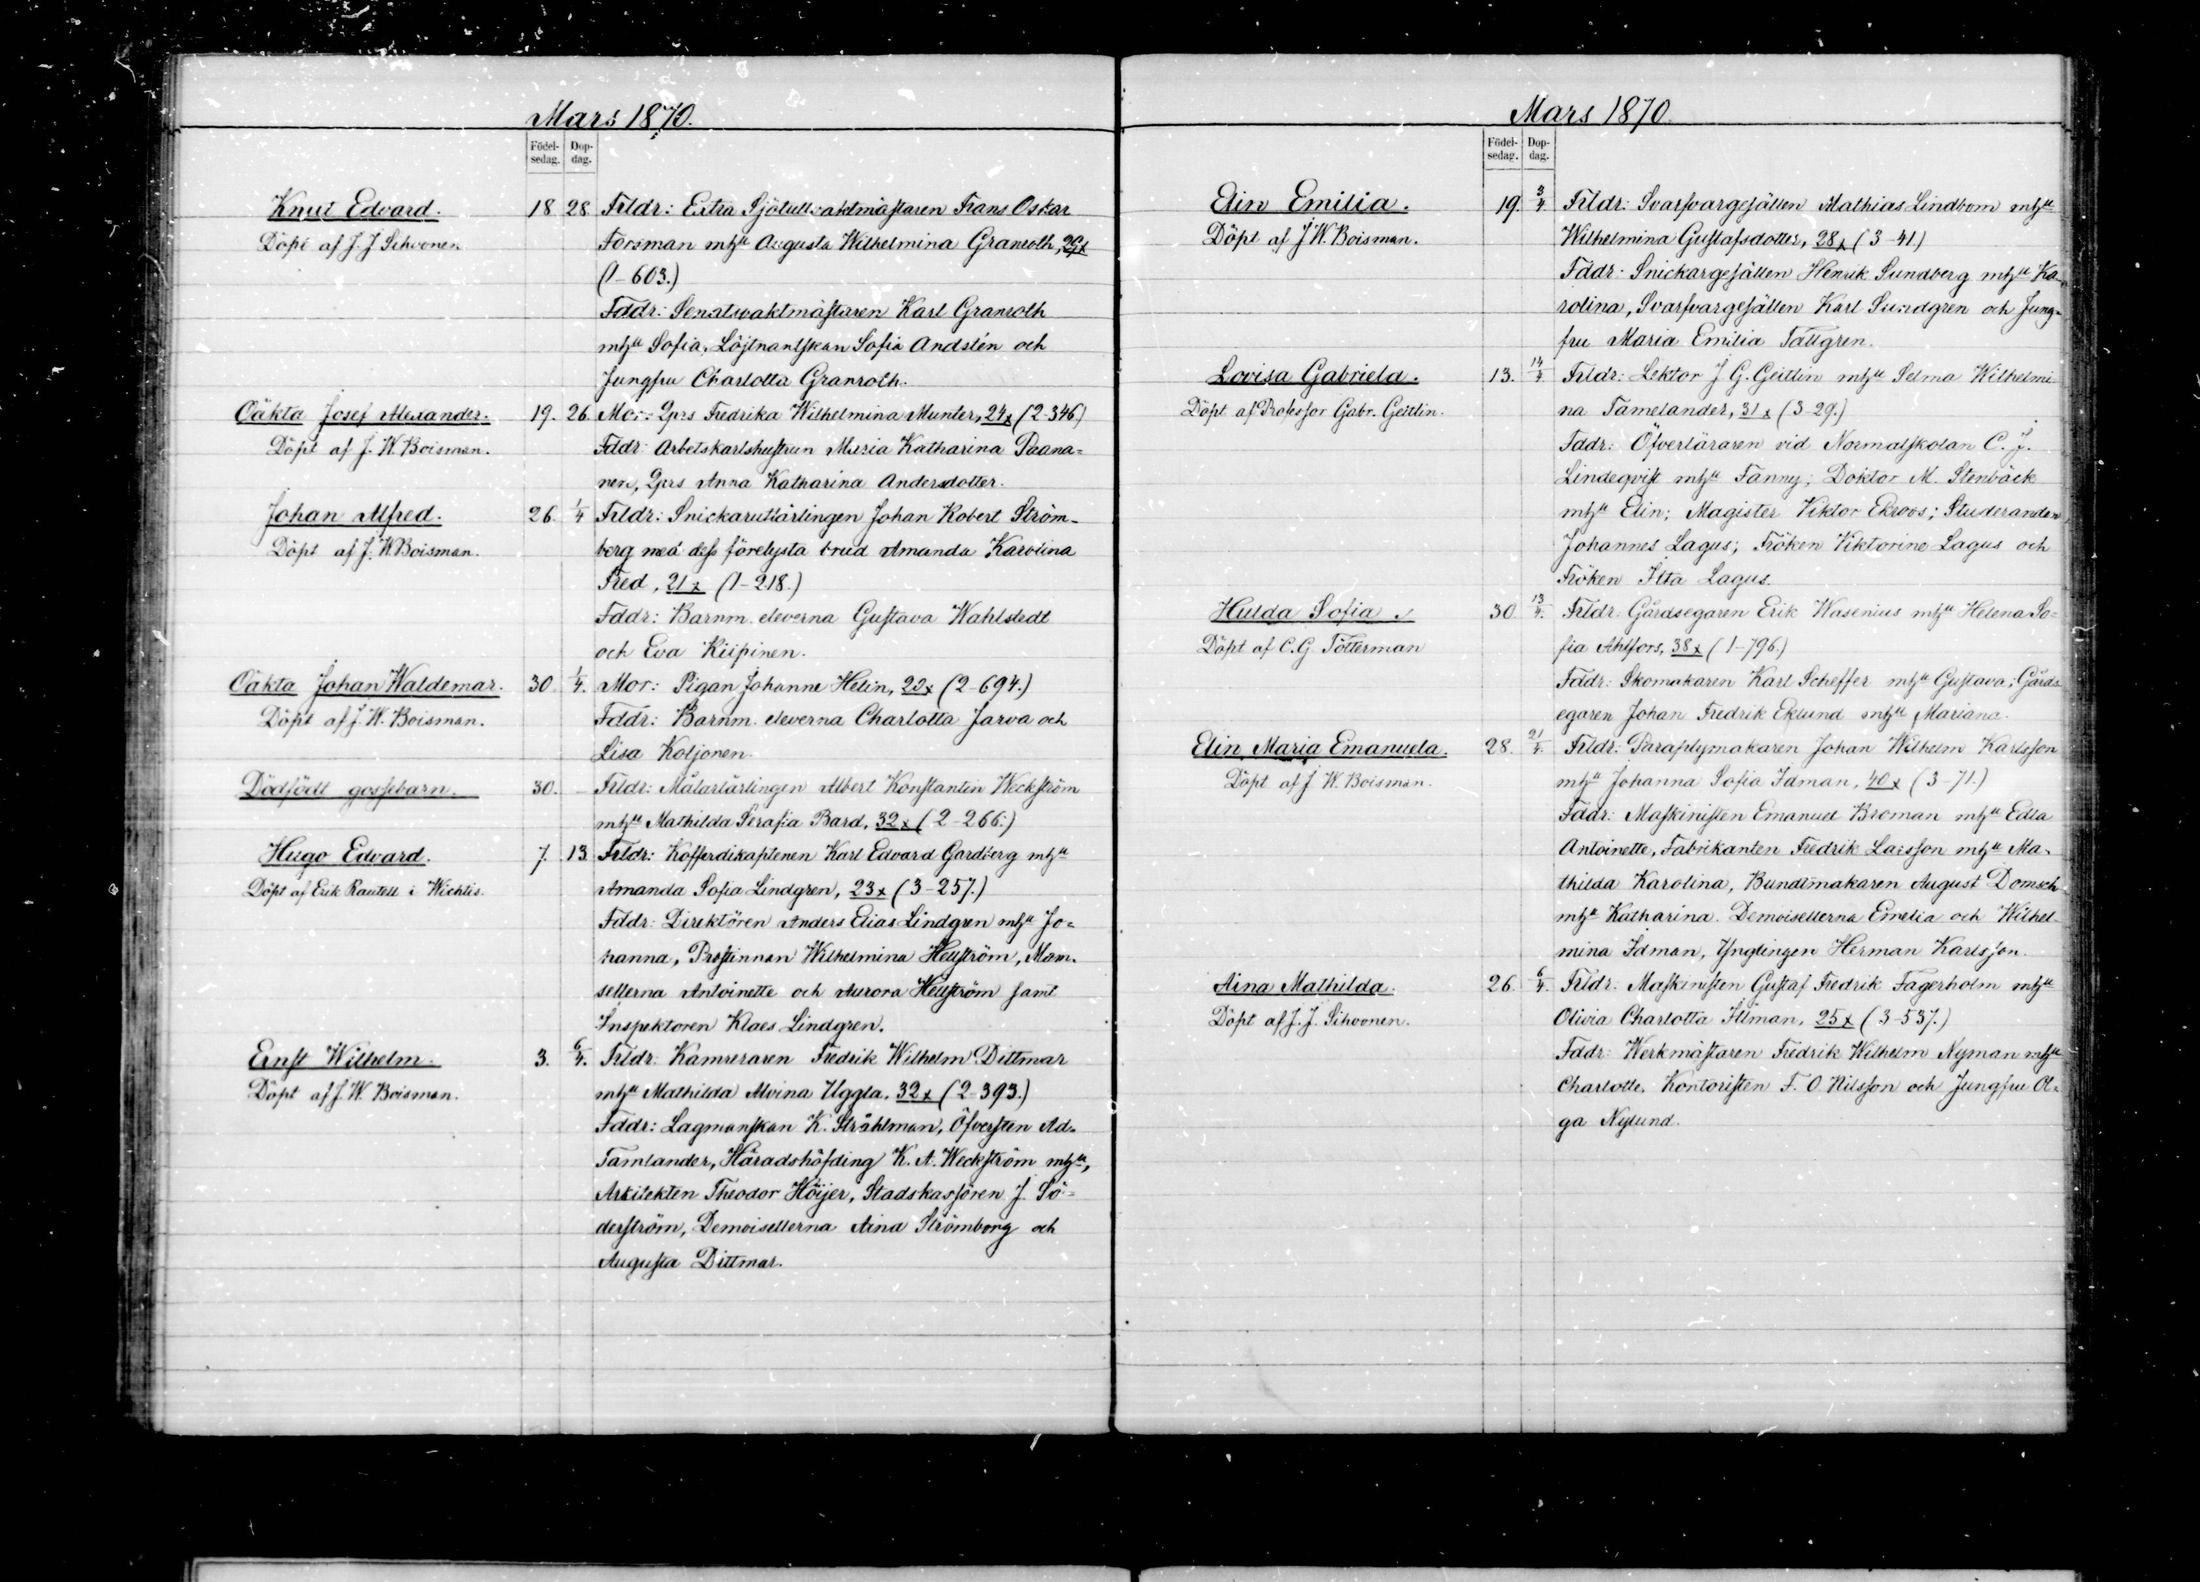 Mars 1870.
Födel-sedag. Dop-dag.
Knut Edvard. 18 28 Frldr: Extra Sjötullvaktmästaren Frans Oskar
Döpt af J. J. Sihvonen Forsman mhu Augusta Wilhelmina Granroth,
(1-603.)
Fddr: Senatsvaktmästaren Karl Granroth
mhu Sofia, Löjtnantskan Sofia Andstén och
Jungfru Charlotta Granroth.
Oäkta Josef Alexander. 19. 26. Mor: Qprs Fredrika Wilhelmina Munter, 24x (2-346)
Döpt af J. W. Boisman. Fddr: Arbetskarlshustrun Maria Katharina Paana=
nen, Qprs Anna Katharina Andersdotter.
Johan Alfred. 26. 1/4 Frldr: Snickarutlärlingen Johan Robert Ström-
Döpt af J. W. Boisman. berg med dess förelysta brud Amanda Karolina
Fred, 21x (1-218.)
Fddr: Barnm. eleverna Gustava Wahlstedt
och Eva Kiipinen.
Oäkta Johan Waldemar. 30. 1/4. Mor: Pigan Johanna Helin, 22x (2-694.)
Döpt af J. W. Boisman. Fddr: Barnm. eleverna Charlotta Jarva och
Lisa Koljonen
Dödfödt gossebarn. 30. – Frldr: Målarlärlingen Albert Konstantin Weckström
mhu Mathilda Serafia Bard, 32x (2-266.)
Hugo Edvard. 7. 13 Frldr: Kofferdikaptenen Karl Edvard Gardberg mhu
Döpt af Erik Rautell i Wichtis. Amanda Sofia Lindgren, 23x (3-257.)
Fddr: Direktören Anders Elias Lindgren mhu Jo=
hanna, Prostinnan Wilhelmina Hellström, Mam-
sellerna Antoinette och Aurora Hellström samt
Inspektoren Klaes Lindgren.
Ernst Wilhelm. 3. 6/4. Frldr: Kamreraren Fredrik Wilhelm Dittmar
Döpt af J. W. Boisman. mhu Mathilda Alvina Uggla, 32x (2-393.)
Fddr: Lagmanskan K. Stråhlman, Öfversten Ad-
Tamlander, Häradshöfding K. A. Weckström mhu,
Arkitekten Theodor Höijer, Stadskassören J. Sö=
derström, Demoisellerna Aina Strömborg och
Augusta Dittmar.
Mars 1870
Födel-sedag. Dop-dag.
Elin Emilia. 19. 3/4 Frldr: Svarfvargesällen Mathias Lindbom mhu
Döpt af J. W. Boisman. Wilhelmina Gustafsdotter, 28x (3-41)
Fddr: Snickargesällen Henrik Sundberg mhu Ka-
rolina, Svarfvargesällen Karl Sundgren och Jung-
fru Maria Emilia Tallgren.
Lovisa Gabriela. 13. 14/4 Frldr: Lektor J. G. Geitlin mhu Selma Wilhelmi
Döpt af Professor Gabr. Geitlin. na Tamelander, 31x (3-29.)
Fddr: Öfverläraren vid Normalskolan C. J.
Lindeqvist mhu Fanny; Doktor M. Stenbäck
mhu Elin; Magister Viktor Ekroos; Studeranden
Johannes Lagus; Fröken Viktorine Lagus och
Fröken Ilta Lagus.
Hulda Sofia. 30 13/4. Frldr: Gårdsegaren Erik Wasenius mhu Helena So=
Döpt af C. G. Tötterman fia Ahlfors, 38x (1-796.)
Fddr: Skomakaren Karl Scheffer mhu Gustava; Gårds
egaren Johan Fredrik Eklund mhu Mariana.
Elin Maria Emanuela. 28. 21/4. Frldr: Paraplymakaren Johan Wilhelm Karlsson
Döpt af J. W. Boisman. mhu Johanna Sofia Idman, 40x (3-71.)
Fddr: Maskinisten Emanuel Broman mhu Edla
Antoinette, Fabrikanten Fredrik Larsson mhu Ma-
thilda Karolina, Buntmakaren August Domsch
mhu Katharina. Demoisellerna Emelia och Wilhel-
mina Idman, Ynglingen Herman Karlsson.
Aina Mathilda. 26. 6/4. Frldr: Maskinisten Gustaf Fredrik Fagerholm mhu
Döpt af J. J. Sihvonen. Olivia Charlotta Illman, 25x (3-537.)
Fddr: Werkmästaren Fredrik Wilhelm Nyman mhu
Charlotte, Kontoristen F. O. Nilsson och Jungfru Ol-
ga Nylund.